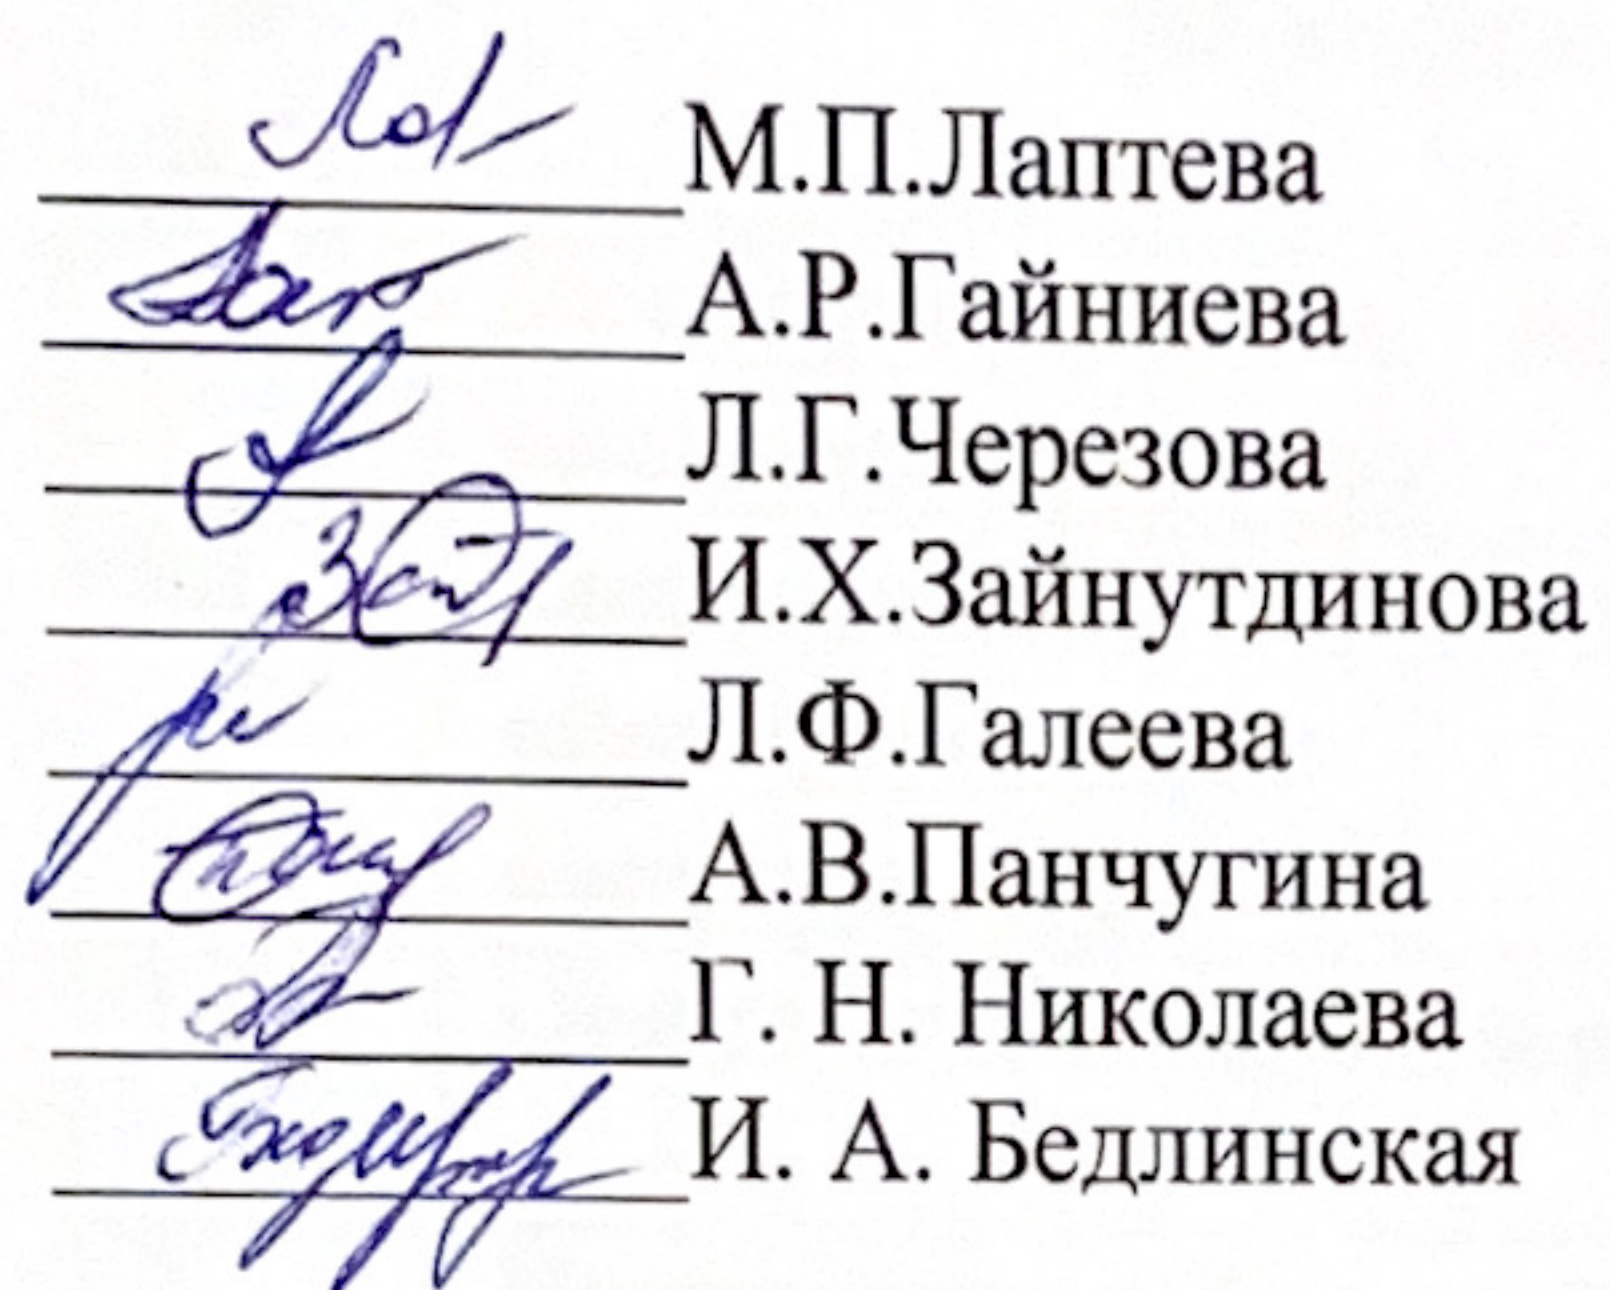 М.П.Лаптева
А.Р.Гайниева
Л.Г.Черезова
И.Х.Зайнутдинова
Л.Ф.Галеева
А.В.Панчугина
Г. Н. Николаева
И. А. Бедлинская